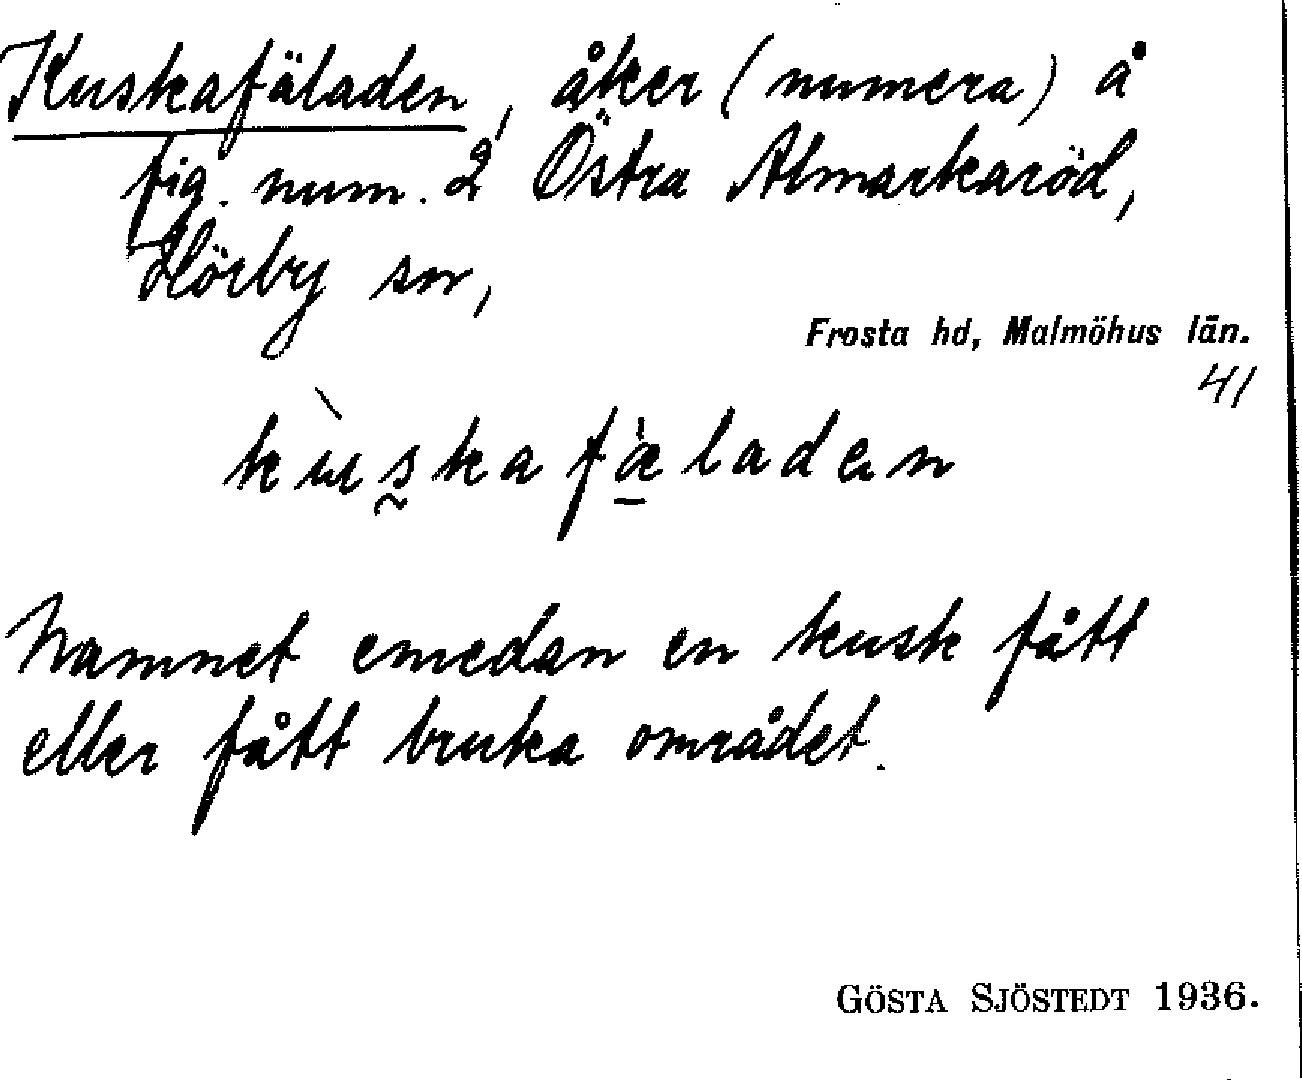 Kuskafäladen, åker (numera) å
fig. num. 2 Östra Almarkaröd,
Hörby sn,
Frosta hd, Malmöhus län.
41
kùskafæ̀laden
Namnet emedan en kusk fått
eller fått bruka området.
GÖSTA SJÖSTEDT 1936.